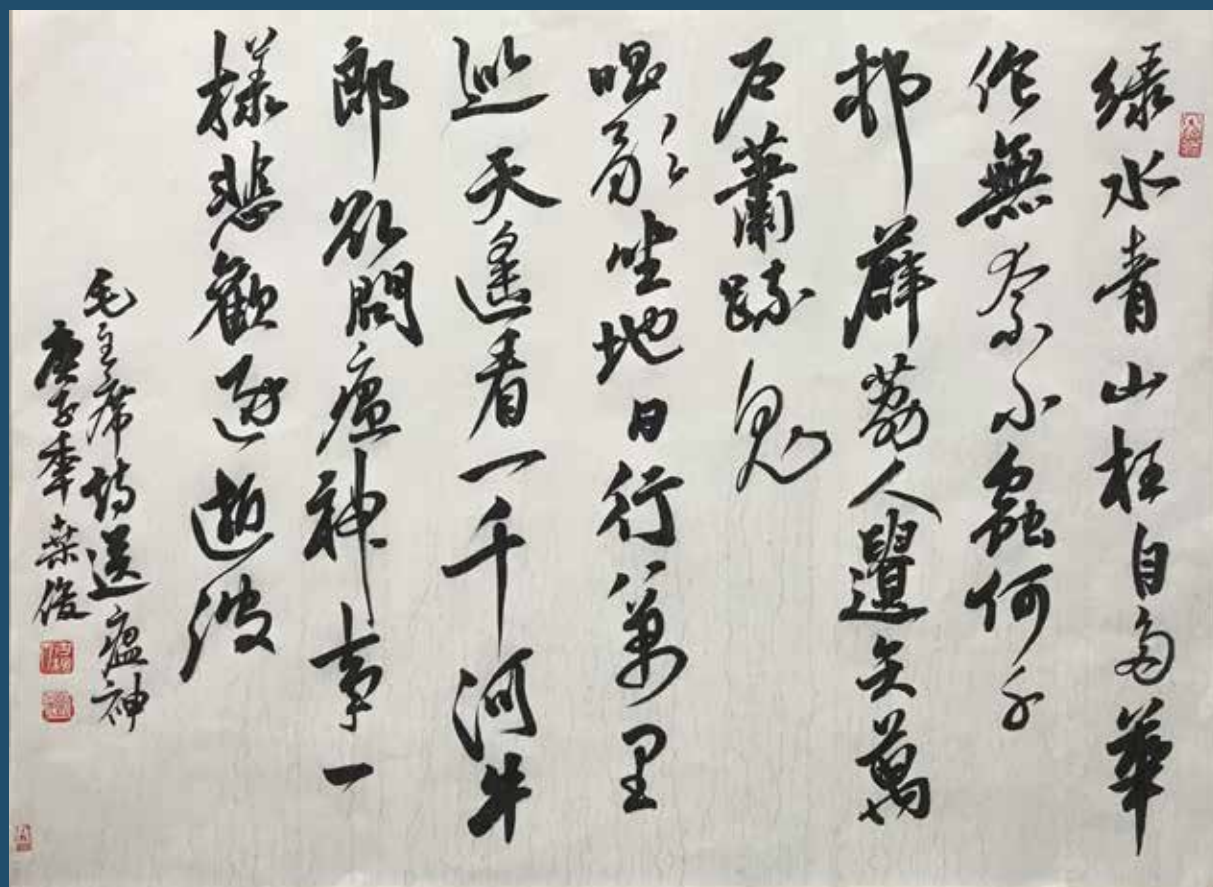 綠水青山枉自多華
佗無奈小蟲何千
邨薜荔人遺矢萬
戶蕭疏鬼
唱歌坐地日行八萬里
巡天遙看一千河牛
郎欲問瘟神事一
樣悲歡逐逝波
毛主席詩送瘟神
庚子秊俊